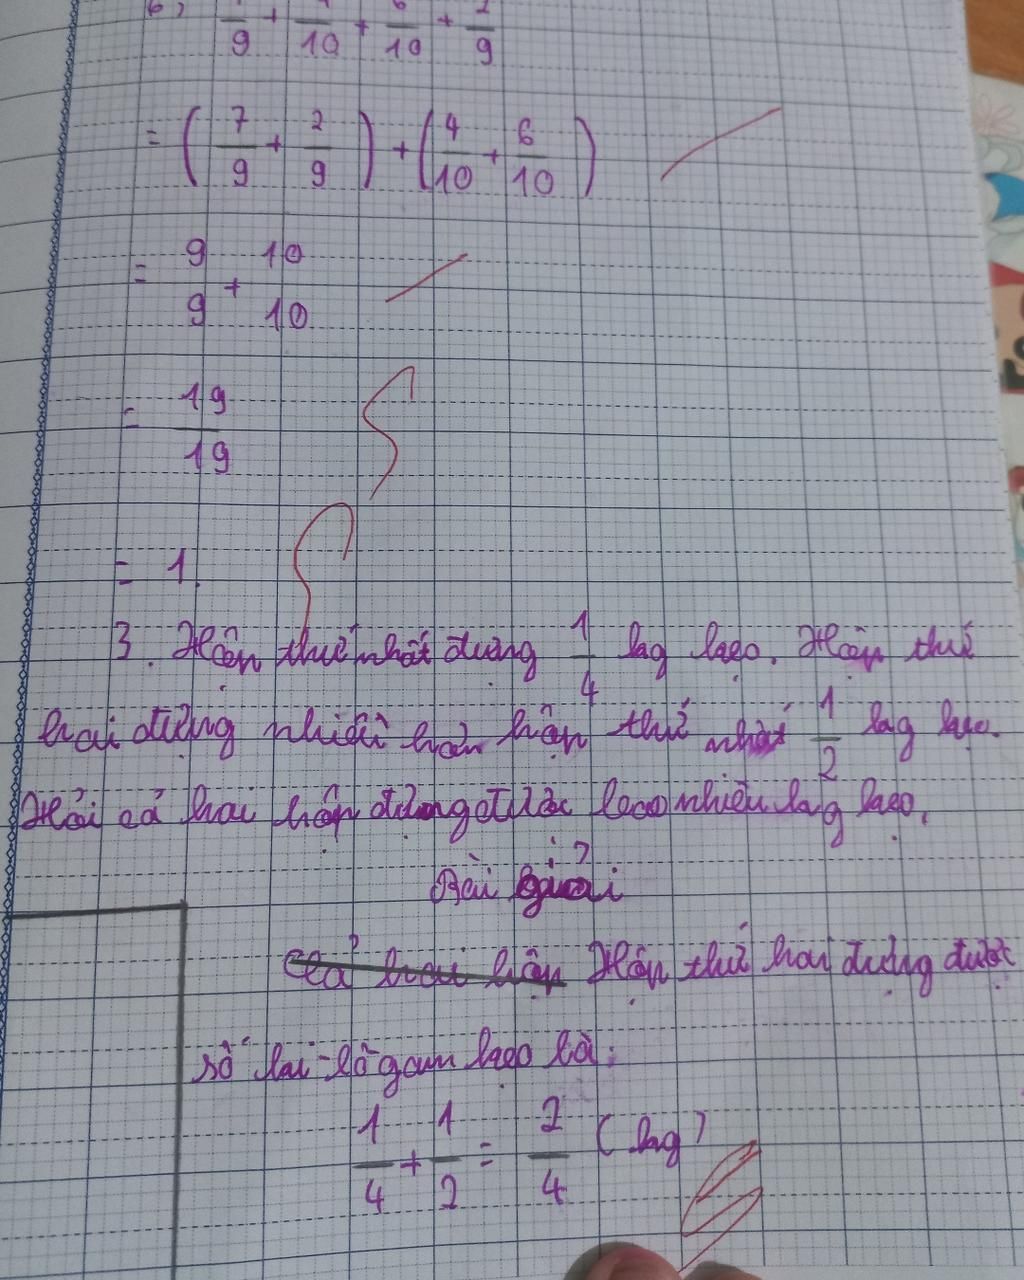 b) 7/9 + 4/10 + 6/10 + 2/9
= (7/9 + 2/9) + (4/10 + 6/10)
= 9/9 + 10/10
= 19/19
= 1
3. Hộp thứ nhất đựng 1/4 kg kẹo. Hộp thứ
hai đựng nhiều hơn hộp thứ nhất 1/2 kg kẹo.
Hỏi cả hai hộp đựng được bao nhiêu kg kẹo.
Bài giải
Cả hai hộp Hộp thứ hai đựng được
số ki-lô-gam kẹo là:
1/4 + 1/2 = 2/4 (kg)